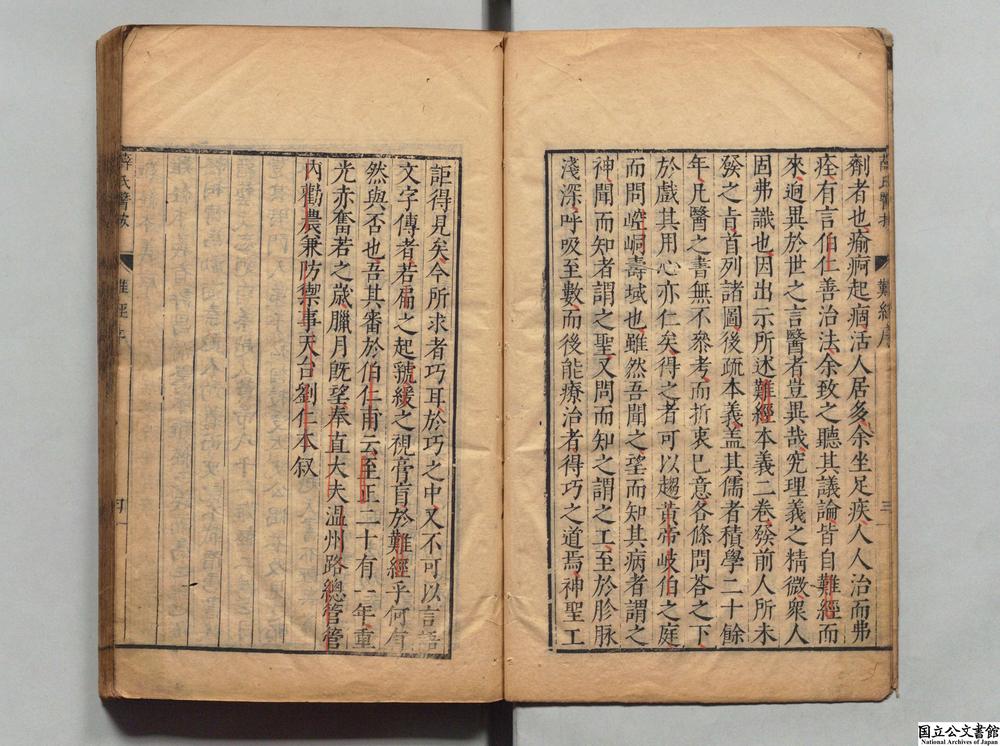 劑者也愈痾起痼活人居多余坐足疾人人治而弗
痊有言伯仁善治法余致之聽其議論皆自難經而
來迥異於世之言醫者豈異哉究理義之精微衆人
固弗識也因出示所述難經本義二卷發前人所未
發之旨首列諸圖後疏本義蓋其儒者積學二十餘
年凡醫之書無不參考而折衷已意各條問答之下
於戲其用心亦仁矣得之者可以趨黃帝岐伯之庭
而問崆峒壽域也雖然吾聞之望而知其病者謂之
神聞而知者謂之聖又問而知之謂之工至於診脉
淺深呼吸至數而後能療治者得巧之道焉神聖工
難經序
三
詎得見矣今所求者巧耳於巧之中又不可以言語
文字傳者若扁之起虢緩之視膏肓於難經乎何有
然與否也吾其審於伯仁甫云至正二十有一年重
光赤奮若之歲臘月旣望奉直大夫溫州路總管管
內勸農兼防禦事天台劉仁本叙
薛氏醫
国立公文書館
National Archives of Japan